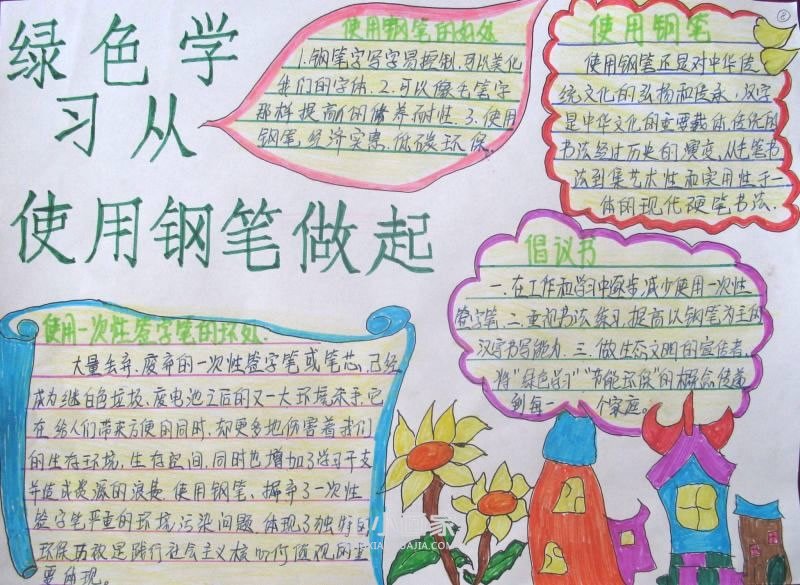 绿色学
习从
使用钢笔做起
使用钢笔的好处
1.钢笔字写字易控制,可以美化
我们的字体.2.可以像毛笔字
那样提高人的修养耐性.3.使用
钢笔,经济实惠,低碳环保.
②
使用钢笔
使用钢笔还是对中华传
统文化的弘扬和传承,汉字
是中华文化的重要载体,传统的
书法经过历史的演变,从毛笔书
法到集艺术性和实用性于一
体的现代硬笔书法.
倡议书
一.在工作和学习中逐步减少使用一次性
签字笔.二.重视书法练习,提高以钢笔为主的
汉字书写能力.三.做生态文明的宣传者,
将“绿色学习”“节能环保”的概念传递
到每一个家庭。
使用一次性签字笔的坏处.
大量丢弃、废弃的一次性签字笔或笔芯,已经
成为继白色垃圾、废电池之后的又一大环境杀手,它
在给人们带来方便的同时,却更多地伤害着我们
的生存环境,生存空间,同时也增加了学习开支
并造成资源的浪费.使用钢笔,摒弃了一次性
签字笔严重的环境污染问题,体现了独特的
环保功效是践行社会主义核心价值观的重
要体现。